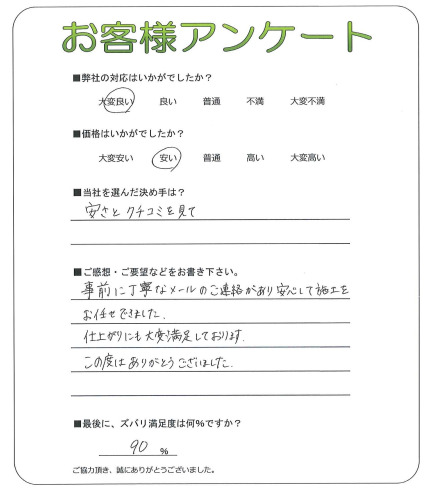 お客様アンケート
■弊社の対応はいかがでしたか?
大変良い 良い 普通 不満 大変不満
■価格はいかがでしたか?
大変安い 安い 普通 高い 大変高い
■当社を選んだ決め手は?
安さとクチコミを見て
■ご感想・ご要望などをお書き下さい。
事前に丁寧なメールのご連絡があり安心して施工を
お任せできました。
仕上がりにも大変満足しております。
この度はありがとうございました。
■最後に、ズバリ満足度は何%ですか?
90 %
ご協力頂き、誠にありがとうございました。